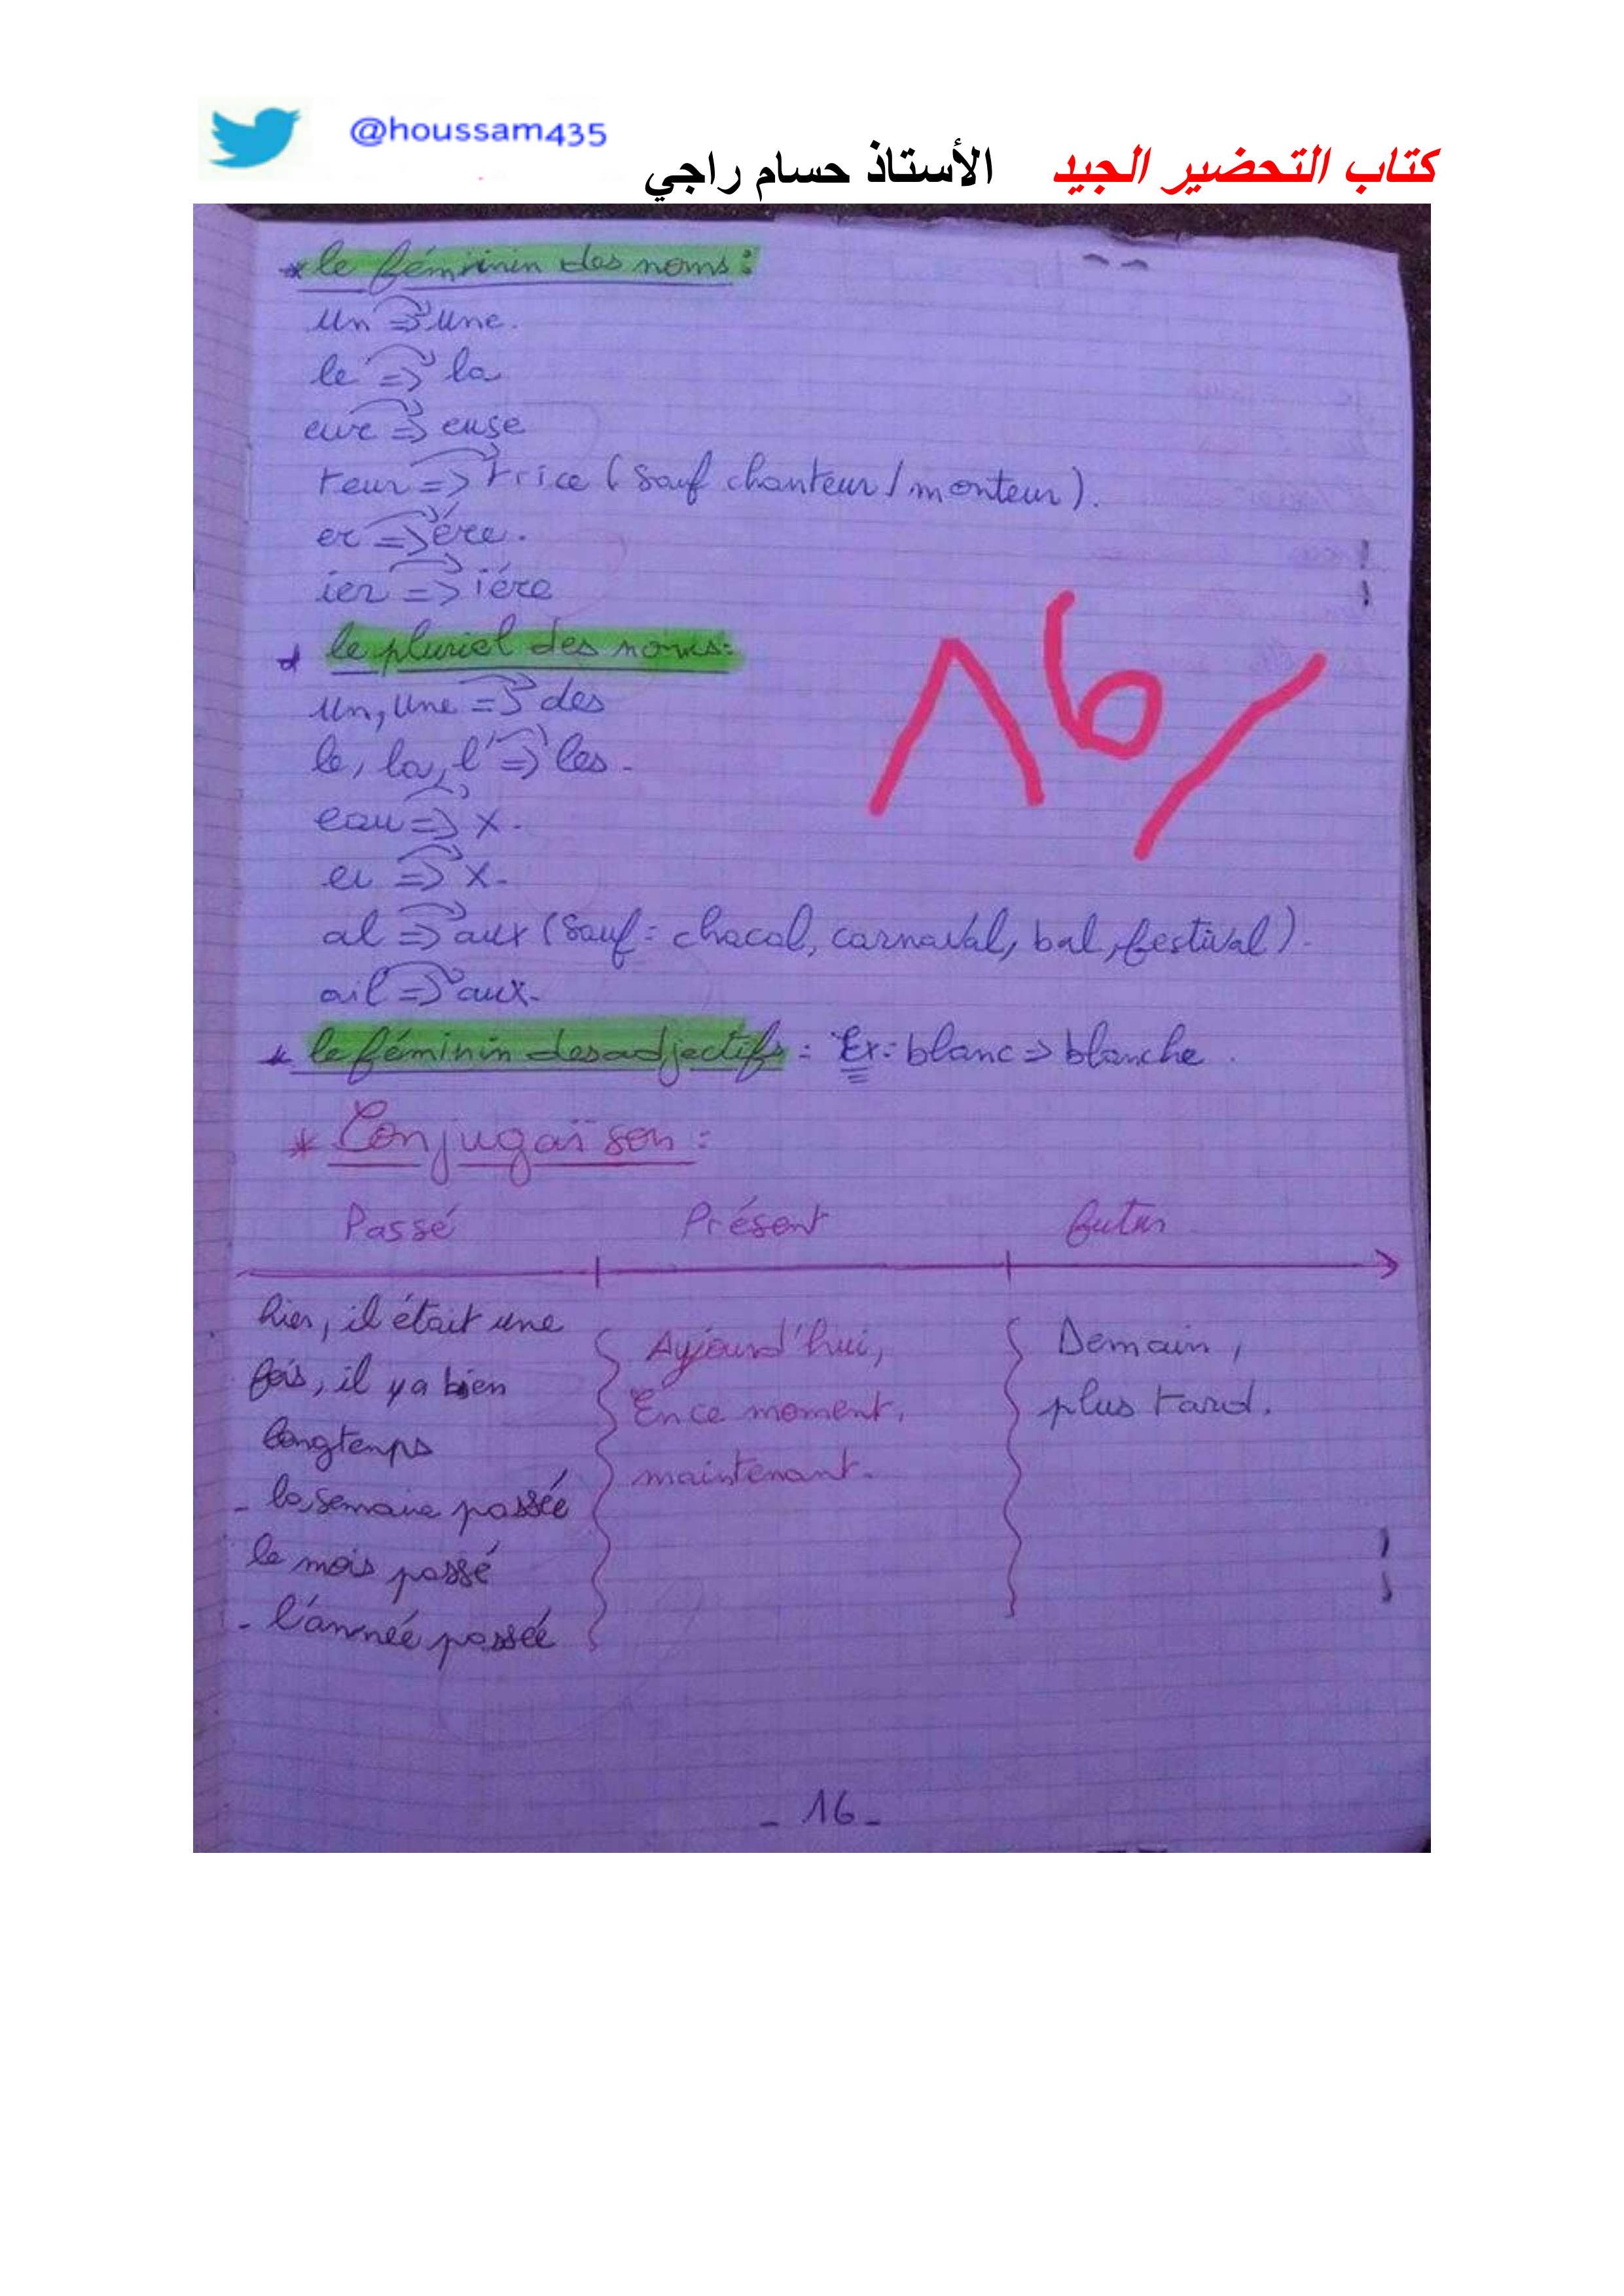 @houssam435
كتاب التحضير الجيد الأستاذ حسام راجي
*le féminin des noms:
un => une.
le => la
eur => euse
teur => trice (sauf chanteur / monteur).
er => ére.
ier => iére
le pluriel des noms:
un, une => des
le, la, l' => les.
eau => x.
eu => x.
al => aux (sauf: chacal, carnaval, bal, festival).
ail => aux.
* le féminin des adjectifs: Ex: blanc => blanche.
* Conjugaison:
Passé Présent futur
hier, il était une
fois, il y a bien
longtemps
- la semaine passée
le mois passé
- l'année passée
Aujourd'hui,
En ce moment,
maintenant.
Demain,
plus tard.
16/
- 16 -